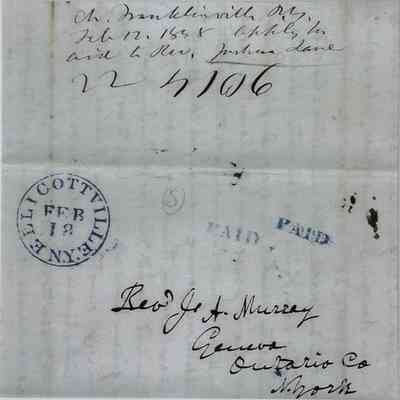 Ch. Franklinville N.Y.
Feb 12. 1848 Apply for
aid to Rev. Joshua Lane
22 4106
ELLICOTTVILLE NY
FEB
18
5
PAID PAID
Revd J. A. Murray
Geneva
Ontario Co
N. York